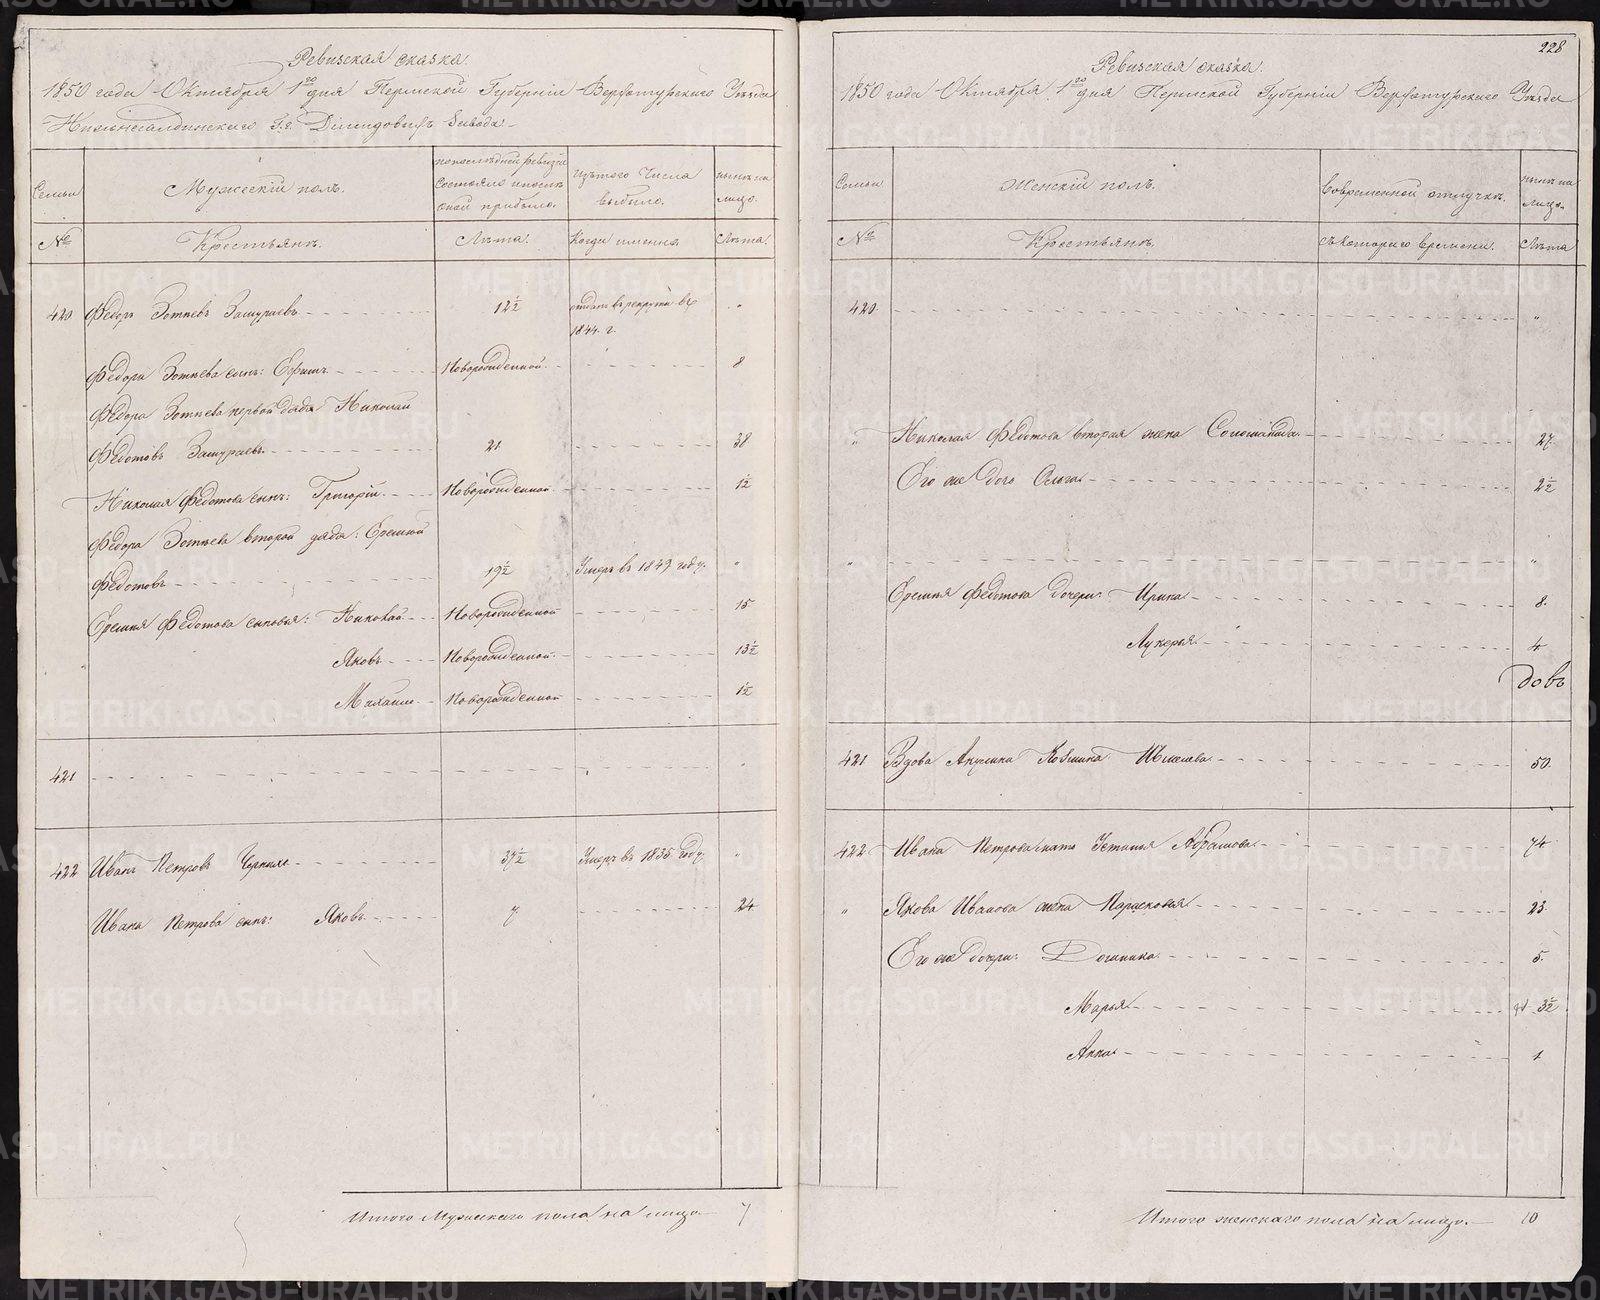 Ревизская сказка.
1850 года Октября 1го дня Пермской Губернии Верхотурского Уѣзда
Нижнесалдинскаго Г.г. Демидовыхъ завода.
Семьи
Мужескій полъ.
по послѣдней ревизіи состояло и послѣ оной прибыло.
Изъ того числа выбыло.
нынѣ на лицо.
№
Крестьянъ.
Лѣта.
Когда именно.
Лѣта.
420 Федоръ Зотѣевъ Зашураевъ 12½ отданъ въ рекруты въ 1844. г. "
Федора Зотѣева сынъ: Ефимъ Новорожденной 8
Федора Зотѣева первой дядя Николай
Федотовъ Зашураевъ 21 38
Николая Федотова сынъ: Григорій Новорожденной 1½
Федора Зотѣева второй дядя: Еремей
Федотовъ 19½ Умеръ въ 1849 году. "
Еремея Федотова сыновья: Николай Новорожденной 15
Яковъ Новорожденной 13½
Михайло Новорожденной 1½
421
422 Иванъ Петровъ 37½ Умеръ въ 1835 году. "
Ивана Петрова сынъ: Яковъ 7 24
Итого Мужескаго пола на лицо 7
228
Ревизская сказка.
1850 года Октября 1го дня Пермской Губерніи Верхотурскаго Уѣзда
Семьи
Женскій полъ.
Во временной отлучкѣ.
нынѣ на лицо.
№
Крестьянъ.
Съ котораго времени.
Лѣта
420 "
" Николая Федотова вторая жена Соломонида 27.
Его же дочь Ольга 2½
" "
Еремея Федотова дочери: Ирина 8.
Лукерья 4
довъ
421 Вдова Акулина Козмина 50.
422 Ивана Петрова мать Устинья Абрамова 74
" Якова Иванова жена Парасковья 23
Его же дочери: Домника 5.
Марья 3½
Анна 1
Итого женскаго пола на лицо. 10
METRIKI.GASO-URAL.RU